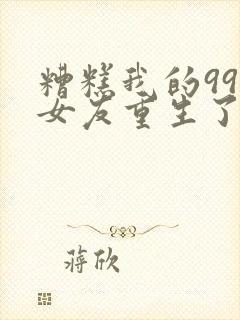 糟糕我的99
女友重生了
蒋欣